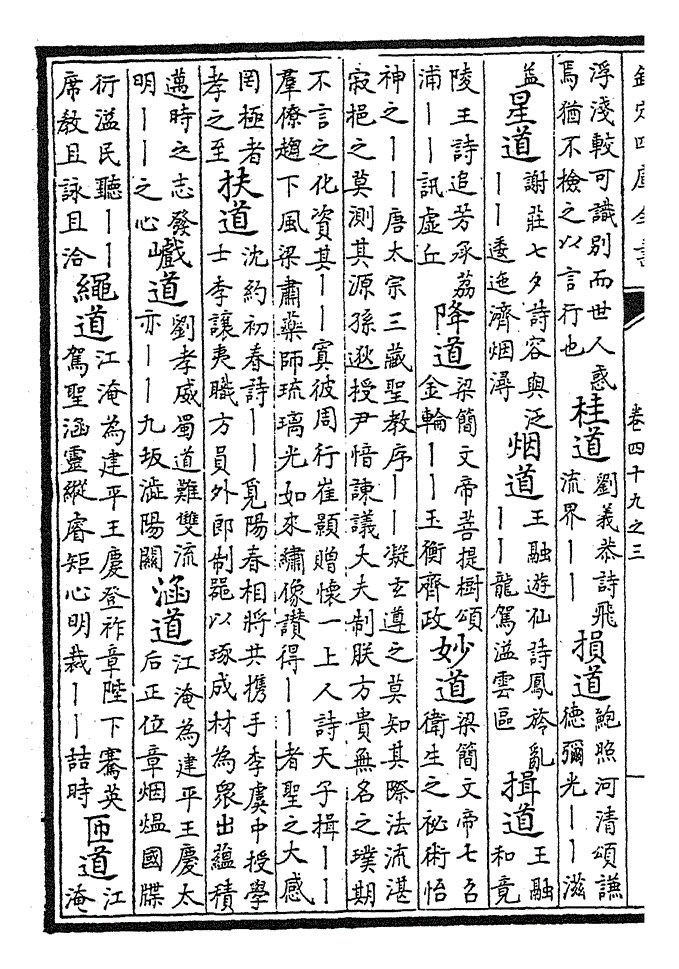 欽定四庫全書
卷四十九之三
浮淺較可識別而世人惑
焉猶不檢之以言行也
桂道
劉義恭詩飛
流界丨丨
損道
鮑照河清頌謙
德彌光丨丨滋
益
星道
謝莊七夕詩容與泛
丨丨逶迤濟烟潯
烟道
王融遊仙詩鳳旍亂
丨丨龍駕溢雲區
揖道
王融
和竟
陵王詩追芳承荔
浦丨丨訊虛丘
降道
梁簡文帝菩提樹頌
金輪丨丨玉衡齊政
妙道
梁簡文帝七召
衛生之祕術怡
神之丨丨唐太宗三藏聖教序丨丨凝玄遵之莫知其際法流湛
寂挹之莫測其源孫逖授尹愔諫議大夫制朕方貴無名之璞期
不言之化資其丨丨寘彼周行崔顥贈懷一上人詩天子揖丨丨
羣僚趨下風梁肅藥師琉璃光如來繡像讚得丨丨者聖之大感
罔極者
孝之至
扶道
沈約初春詩丨丨覓陽春相將共攜手李虞中授學
士李讓夷職方員外郎制噐以琢成材為衆出蘊積
邁時之志發
明丨丨之心
巇道
劉孝威蜀道難雙流
亦丨丨九坂澁陽關
涵道
江淹為建平王慶太
后正位章烟熅國牒
衍溢民聽丨丨
席教且詠且洽
繩道
江淹為建平王慶登祚章陛下騫英
駕聖涵靈縱睿矩心明裁丨丨詰時
匝道
江
淹